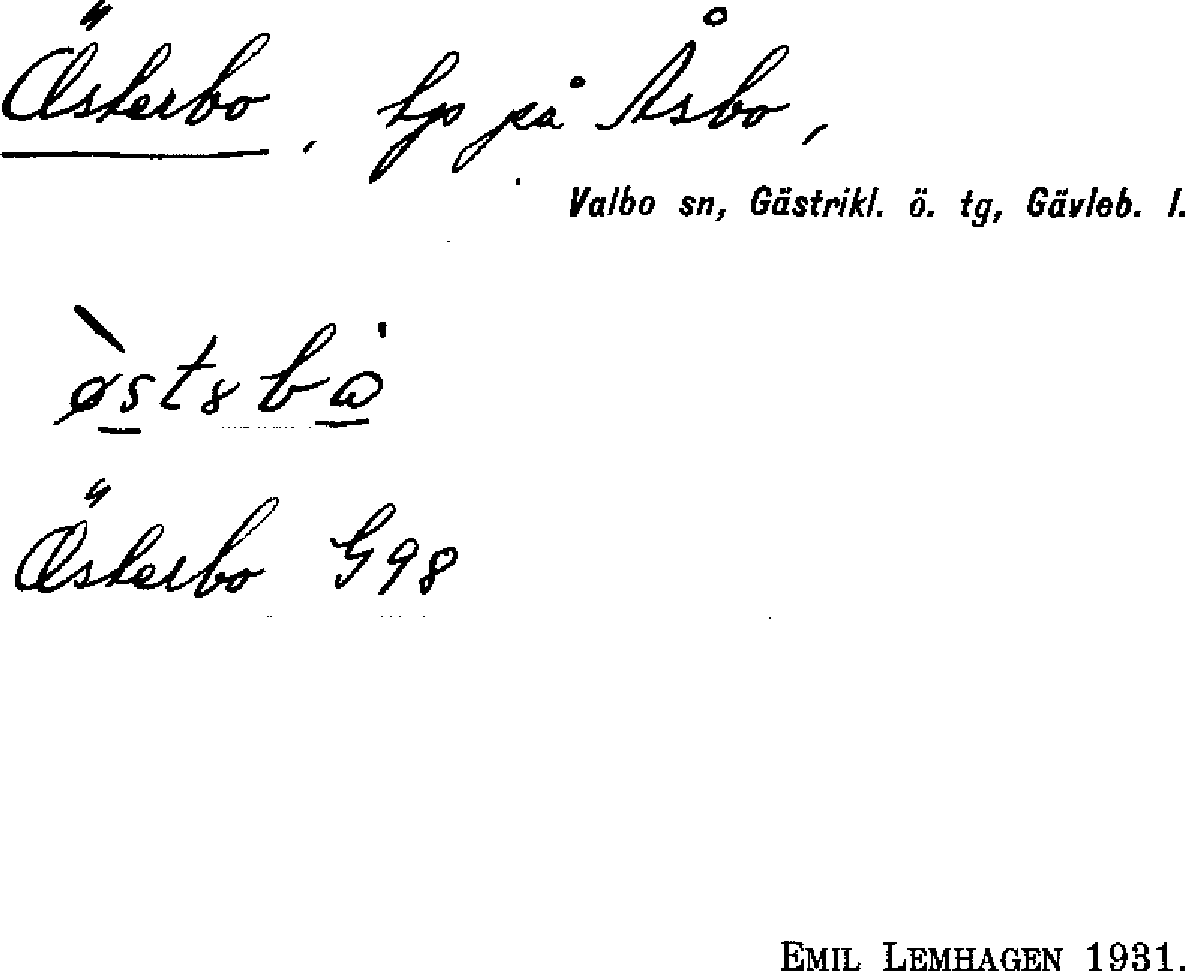 Österbo, hp på Åsbo,
Valbo sn, Gästrikl. ö. tg, Gävleb. l.
Österbo G98
EMIL LEMHAGEN 1931.